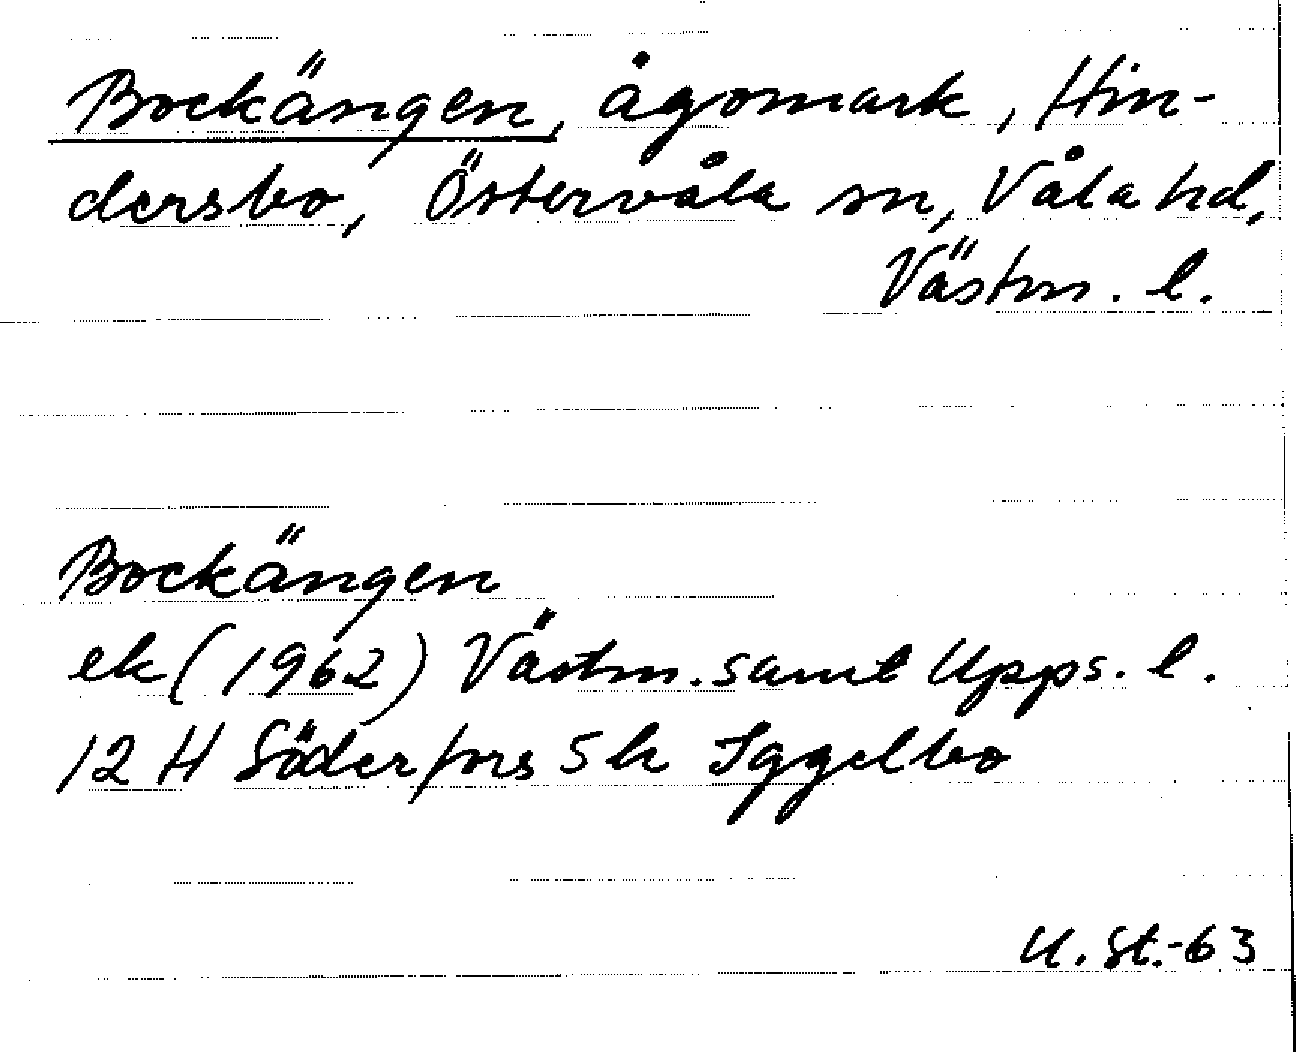 Bockängen, ägomark, Hin-
dersbo, Östervåla sn, Våla hd,
Västm. l.
Bockängen
ek (1962) Västm. samt Upps. l.
12 H Söderfors 5 h Iggelbo
U. St.-63